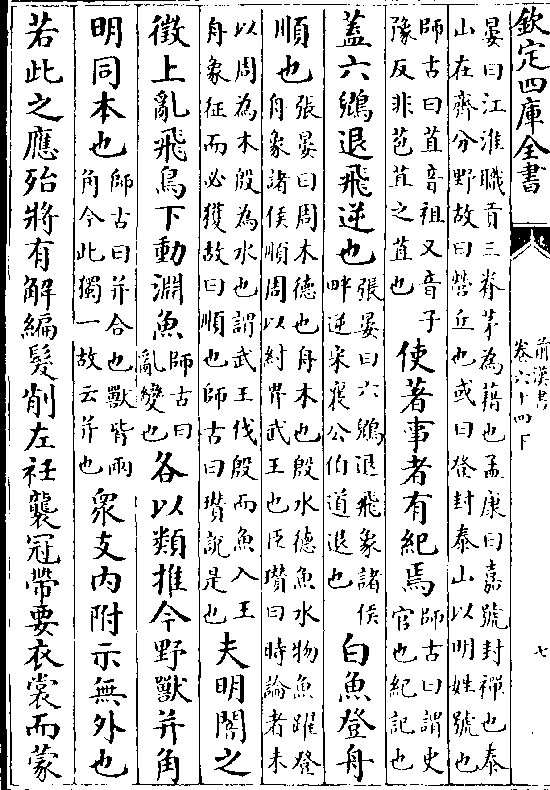 欽定四庫全書
前漢書
卷六十四下
七
晏曰江淮職貢三脊茅為藉也孟康曰嘉號封禪也泰
山在齊分野故曰營丘也或曰登封泰山以明姓號也
師古曰苴音祖又音子
豫反非苞苴之苴也
使著事者有紀焉
師古曰謂史
官也紀記也
蓋六鶂退飛逆也
張晏曰六鶂退飛象諸侯
畔逆宋襄公伯道退也
白魚登舟
順也
張晏曰周木德也舟木也殷水德魚水物魚躍登
舟象諸侯順周以紂畀武王也臣瓚曰時論者未
以周為木殷為水也謂武王伐殷而魚入王
舟象征而必獲故曰順也師古曰瓚說是也
夫明闇之
徵上亂飛鳥下動淵魚
師古曰
亂變也
各以類推今野獸并角
明同本也
師古曰并合也獸皆兩
角今此獨一故云并也
衆支內附示無外也
若此之應殆將有解編髮削左衽襲冠帶要衣裳而蒙